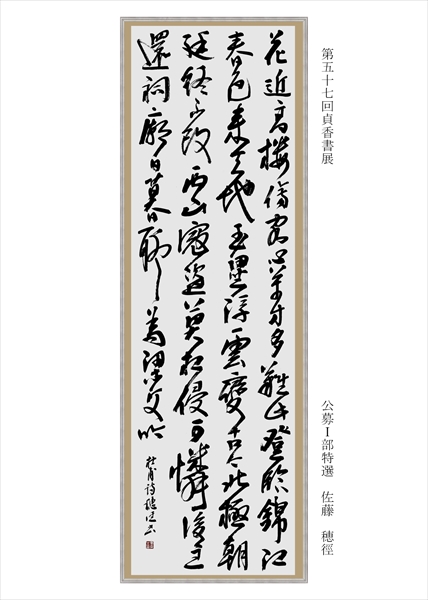 第五十七回貞香書展
公募Ⅰ部特選　佐藤　穂徑
花近高樓傷客心萬方多難此登臨錦江
春色来天地玉壘浮雲變古今北極朝
廷終不改西山寇盗莫相侵可憐後主
還祠廟日暮聊為梁父吟
杜甫詩穂径书